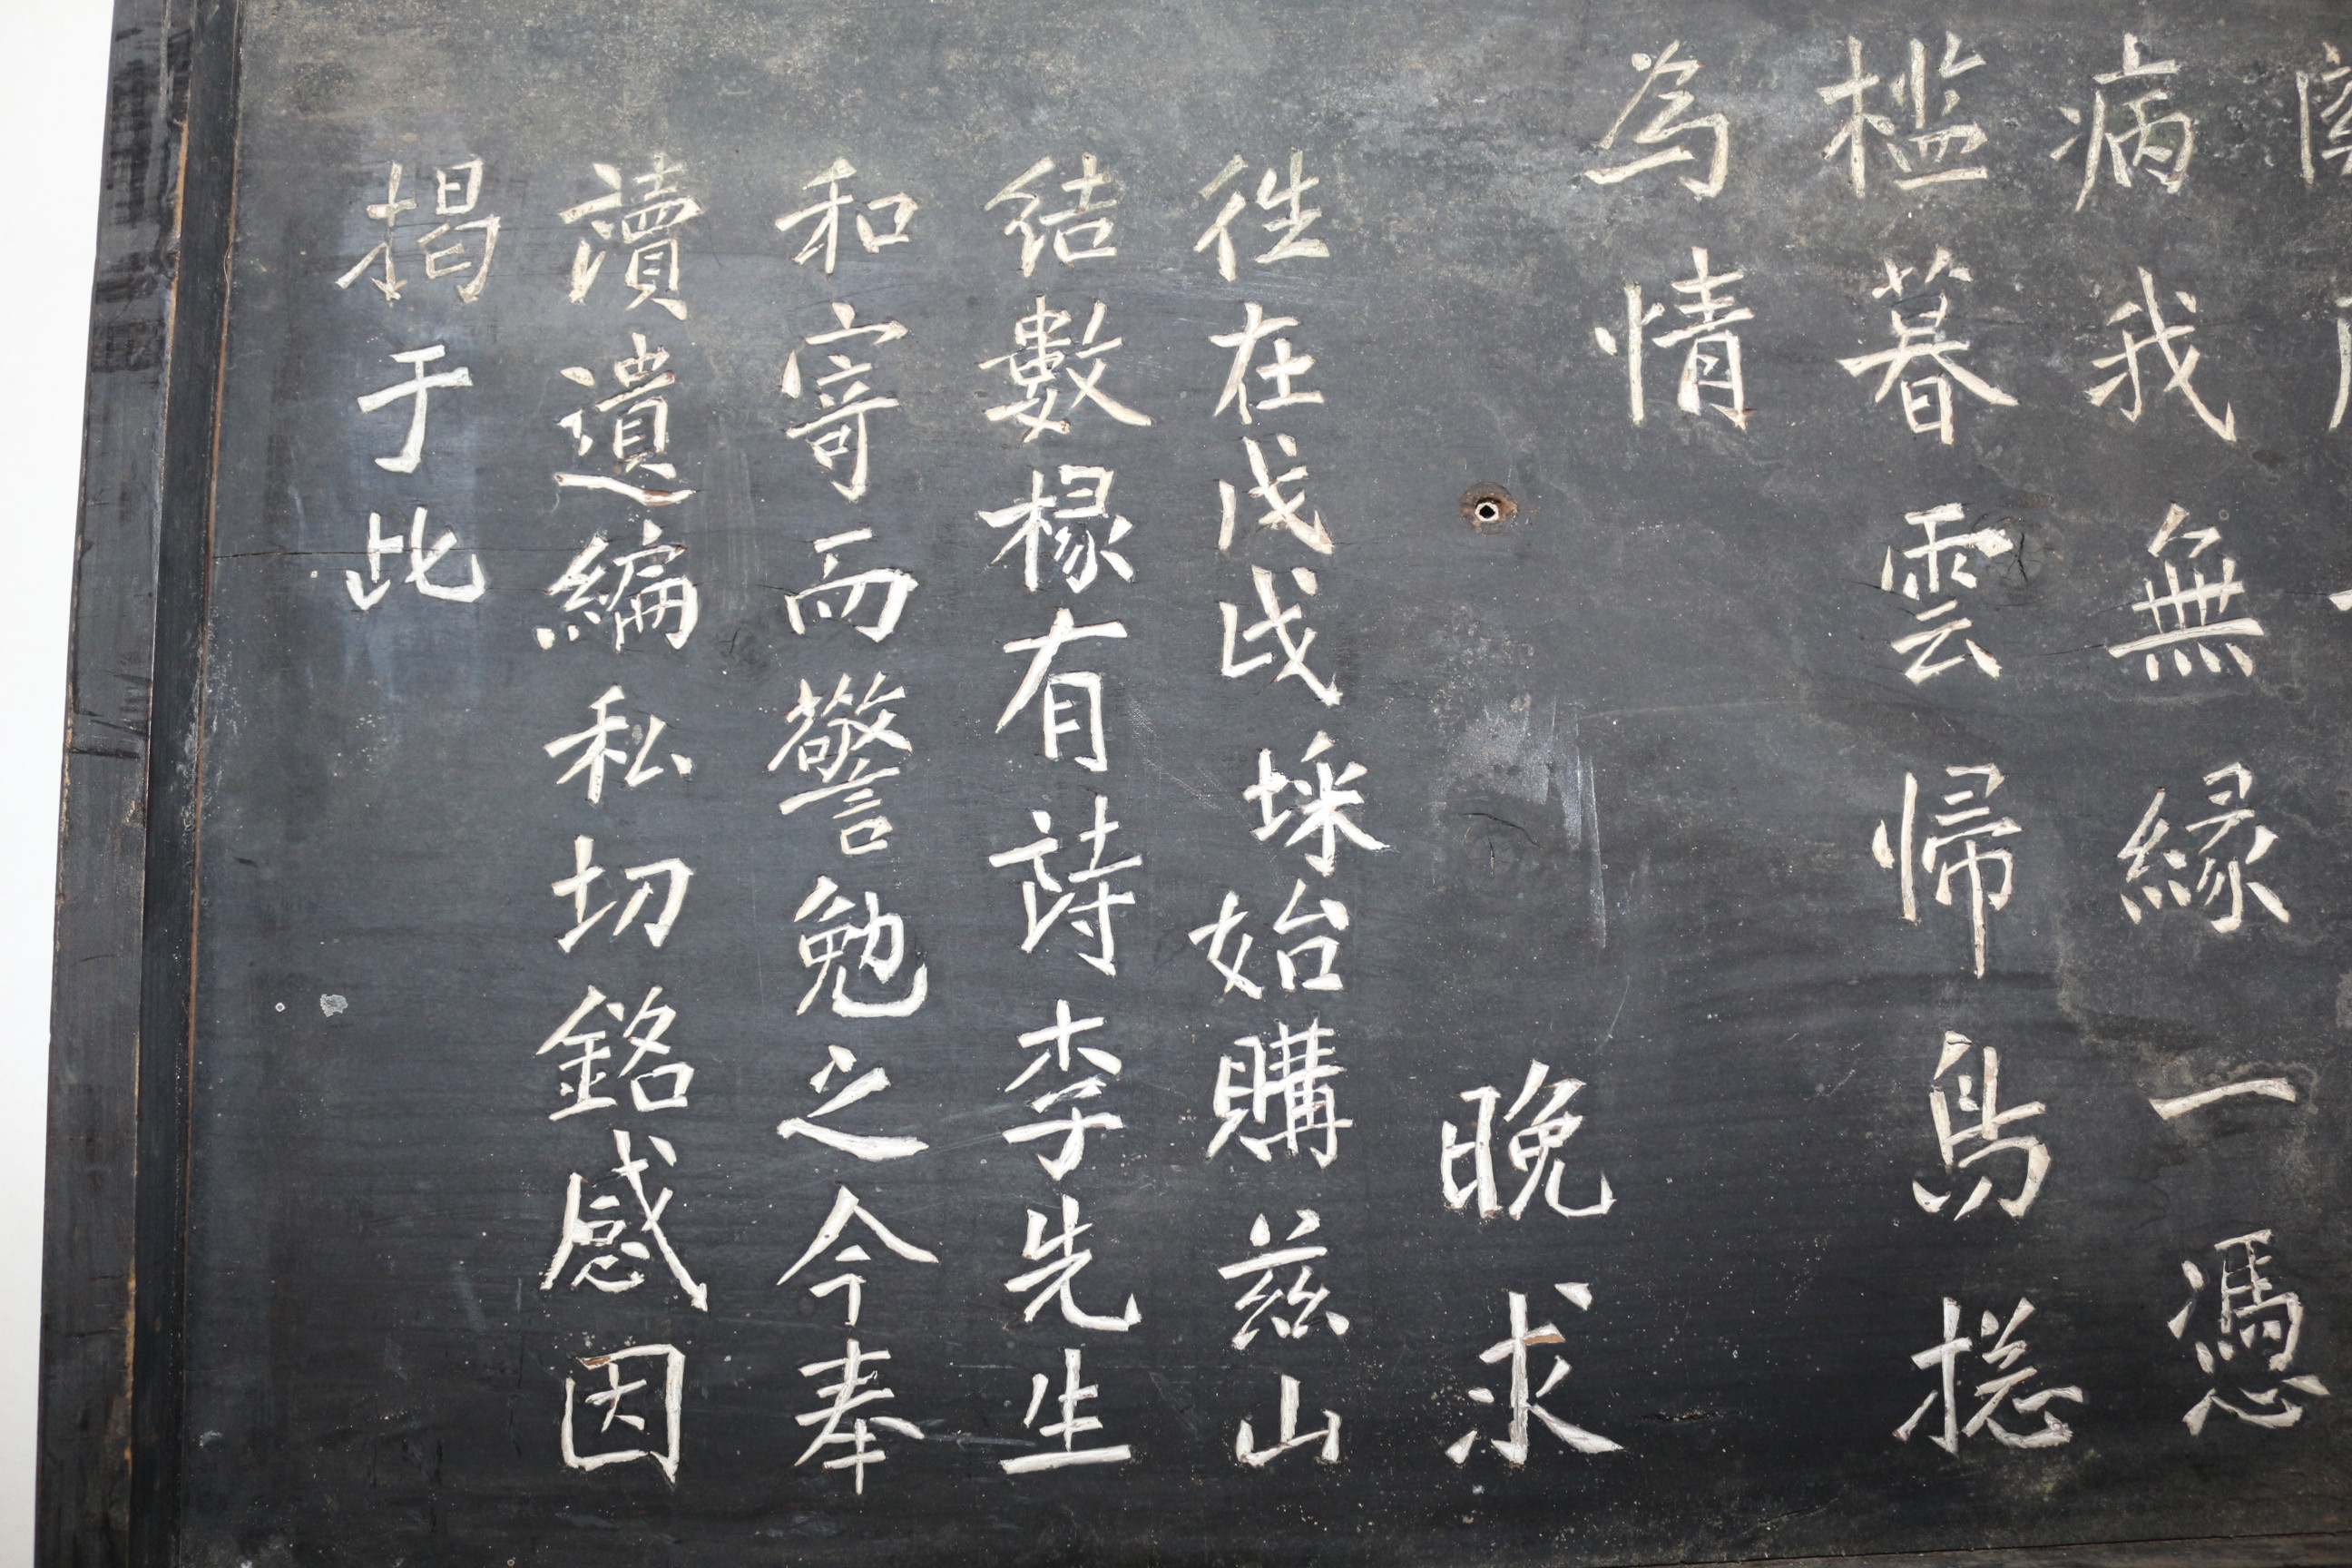 病我無緣一憑
檻暮雲帰鳥揔
為情
晚求
徃在戊戌埰始購茲山
結數椽有詩李先生
和寄而警勉之今奉
讀遺編私切銘感因
揭于此